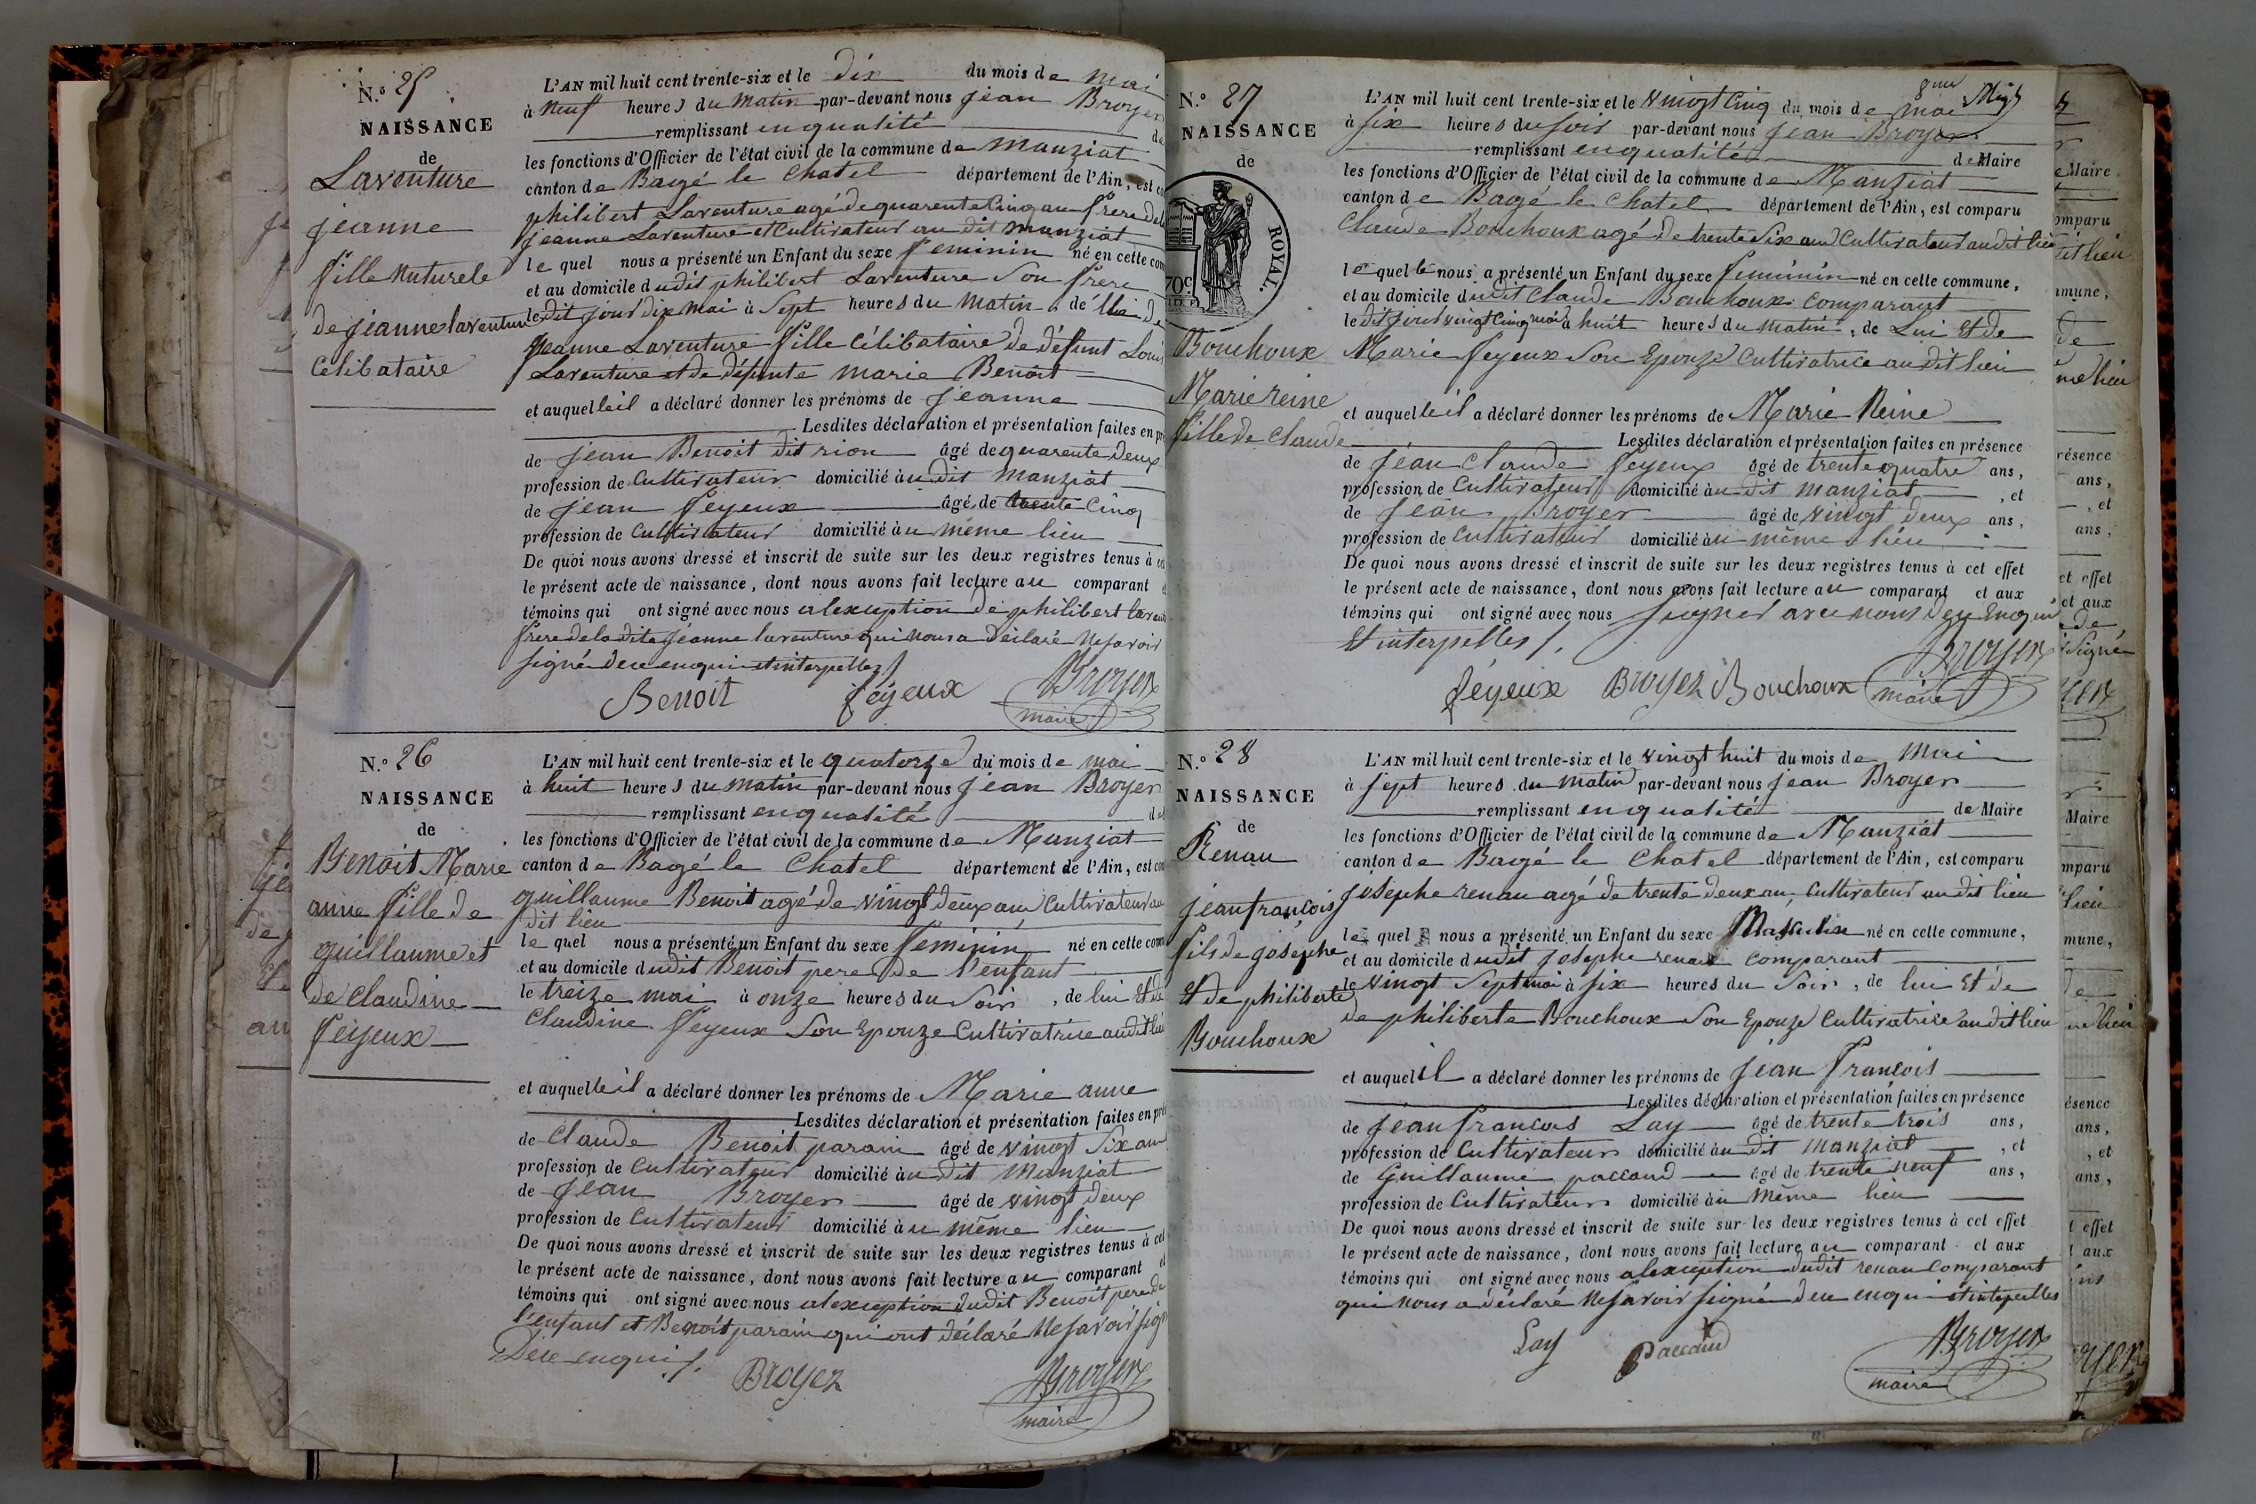 N.º 25
NAISSANCE
de
Laventure
jeanne
fille naturele
de jeanne laventure
célibataire
L'AN mil huit cent trente-six et le dix du mois de mai
à neuf heures du matin par-devant nous jean Broyer
remplissant en qualité de
les fonctions d'Officier de l'état civil de la commune de manziat
canton de Bagé le chatel département de l'Ain, est
philibert Laventure agé de quarente Cinq an frere de
jeanne Laventure et Cultivateur au dit manziat
le quel nous a présenté un Enfant du sexe feminin né en cette
et au domicile dudit philibert Laventure Son frere
ledit jour dix mai à Sept heures du matin, de
jeanne Laventure fille Célibataire de défunt Loui
Laventure et de défunte marie Benoit
et auquelle il a déclaré donner les prénoms de jeanne
Lesdites déclaration et présentation faites en
de jean Benoit dit rion âgé de quarente deux
profession de Cultivateur domicilié au dit manziat
de jean feyeux âgé de trente Cinq
profession de Cultivateur domicilié au même lieu
De quoi nous avons dressé et inscrit de suite sur les deux registres tenus à
le présent acte de naissance, dont nous avons fait lecture au comparant
témoins qui ont signé avec nous alexception de philibert
frere de la dite jeanne laventure qui nous a déclaré ne savoir
signé de ce enqui et interpellez
Benoit feyeux Broyer
maire
N.º 26
NAISSANCE
de
Benoit Marie
anne fille de
guillaume et
de Claudine
feyeux
L'AN mil huit cent trente-six et le quatorze du mois de mai
à huit heures du matin par-devant nous jean Broyer
remplissant en qualité
les fonctions d'Officier de l'état civil de la commune de Manziat
canton de Bagé le Chatel département de l'Ain, est
guillaume Benoit agé de vingt deux an Cultivateur au
dit lieu
le quel nous a présenté un Enfant du sexe feminin né en cette
et au domicile dudit Benoit pere de l'enfant
le treize mai à onze heures du Soir, de lui Et de
Claudine feyeux Son Epouze Cultivatrice audit lieu
et auquelle il a déclaré donner les prénoms de Marie anne
Lesdites déclaration et présentation faites en
de Claude Benoit parain âgé de vingt Six an
profession de Cultivateur domicilié au dit manziat
de jean Broyer âgé de vingt deux
profession de Cultivateur domicilié au même lieu
De quoi nous avons dressé et inscrit de suite sur les deux registres tenus à cet
le présent acte de naissance, dont nous avons fait lecture au comparant
témoins qui ont signé avec nous alexception dudit Benoit pere de
l'enfant et Benoit parain qui ont déclaré ne savoir
De ce enqui
Broyer Broyer
maire
N.º 27
NAISSANCE
de
ROYAL.
70c.
Bouchoux
Marie reine
fille de Claude
L'AN mil huit cent trente-six et le vingt cinq du mois de mai
à six heures du soir par-devant nous jean Broyer
remplissant en qualité de Maire
les fonctions d'Officier de l'état civil de la commune de Manziat
canton de Bagé le Chatel département de l'Ain, est comparu
Claude Bouchoux agé de trente Six an Cultivateur au dit lieu
le quel nous a présenté un Enfant du sexe feminin né en cette commune,
et au domicile dudit Claude Bouchoux comparant
le dit jour vingt Cinq mai à huit heures du matin, de Lui Et de
Marie feyeux Son Epouze Cultivatrice au dit lieu
et auquelle il a déclaré donner les prénoms de Marie Reine
Lesdites déclaration et présentation faites en présence
de jean Claude feyeux âgé de trente quatre ans,
profession de Cultivateur domicilié au dit manziat, et
de jean Broyer âgé de vingt deux ans,
profession de Cultivateur domicilié au même lieu
De quoi nous avons dressé et inscrit de suite sur les deux registres tenus à cet effet
le présent acte de naissance, dont nous avons fait lecture au comparant et aux
témoins qui ont signé avec nous
Et interpelles
feyeux Broyer Bouchoux Broyer
maire
N.º 28
NAISSANCE
de
Renau
jean françois
fils de josephe
Et de philiberte
Bouchoux
L'AN mil huit cent trente-six et le vingt huit du mois de Mai
à sept heures du matin par-devant nous jean Broyer
remplissant en qualité de Maire
les fonctions d'Officier de l'état civil de la commune de Manziat
canton de Bagé le Chatel département de l'Ain, est comparu
josephe renau agé de trente deux an, Cultivateur au dit lieu
le quel nous a présenté un Enfant du sexe Masculin né en cette commune,
et au domicile dudit josephe renau comparant
le vingt Sept mai à six heures du Soir, de lui Et de
de philiberte Bouchoux Son Epouze Cultivatrice au dit lieu
et auquel il a déclaré donner les prénoms de jean francois
Lesdites déclaration et présentation faites en présence
de jean francois Lay âgé de trente trois ans,
profession de Cultivateur domicilié au dit manziat, et
de Guillaume paccaud âgé de trente neuf ans,
profession de Cultivateur domicilié au même lieu
De quoi nous avons dressé et inscrit de suite sur les deux registres tenus à cet effet
le présent acte de naissance, dont nous avons fait lecture au comparant et aux
témoins qui ont signé avec nous alexception dudit renau Comparant
qui nous a déclaré ne savoir signé de ce enqui et intepelles
Lay Paccaud Broyer
maire